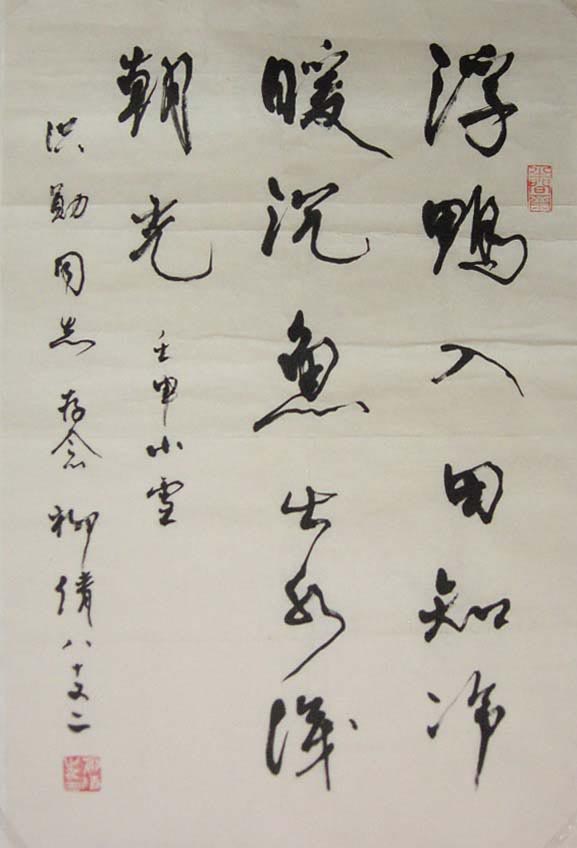 浮鸭入田知冷
暖沉鱼出水識
朝光 壬申小雪
洪勋同志存念 柳倩八十又二